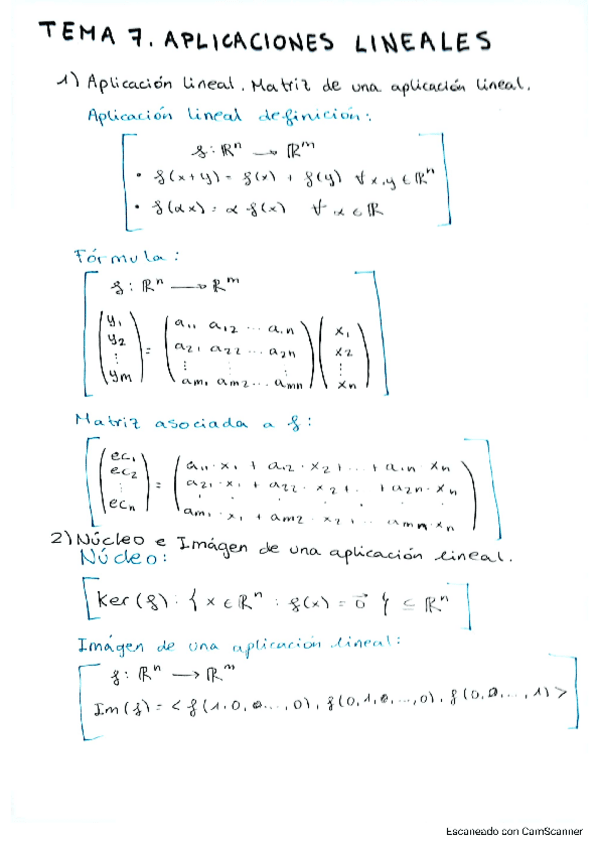 TEMA 7. APLICACIONES LINEALES
1) Aplicación lineal. Matriz de una aplicación lineal.
Aplicación lineal definición:
f: ℝⁿ → ℝᵐ
• f(x+y) = f(x) + f(y) ∀ x,y ∈ ℝⁿ
• f(αx) = α f(x) ∀ α ∈ ℝ
Fórmula:
f: ℝⁿ → ℝᵐ
(y₁ y₂ ⋮ yₘ) = (a₁₁ a₁₂ ... a₁ₙ
a₂₁ a₂₂ ... a₂ₙ
⋮ ⋮ ⋮
aₘ₁ aₘ₂ ... aₘₙ) (x₁ x₂ ⋮ xₙ)
Matriz asociada a f:
(ec₁ ec₂ ⋮ ecₙ) = (a₁₁·x₁ + a₁₂·x₂ + ... + a₁ₙ xₙ
a₂₁·x₁ + a₂₂·x₂ + . + a₂ₙ·xₙ
. . . . .
aₘ₁·x₁ + aₘ₂·x₂ + ... aₘₙ·xₙ)
2) Núcleo e Imágen de una aplicación lineal.
Núcleo:
Ker(f): { x ∈ ℝⁿ : f(x) = 0⃗ } ⊆ ℝⁿ
Imágen de una aplicación lineal:
f: ℝⁿ → ℝᵐ
Im(f) = < f(1,0,0...,0), f(0,1,0,...,0), f(0,0,...,1) >
Escaneado con CamScanner